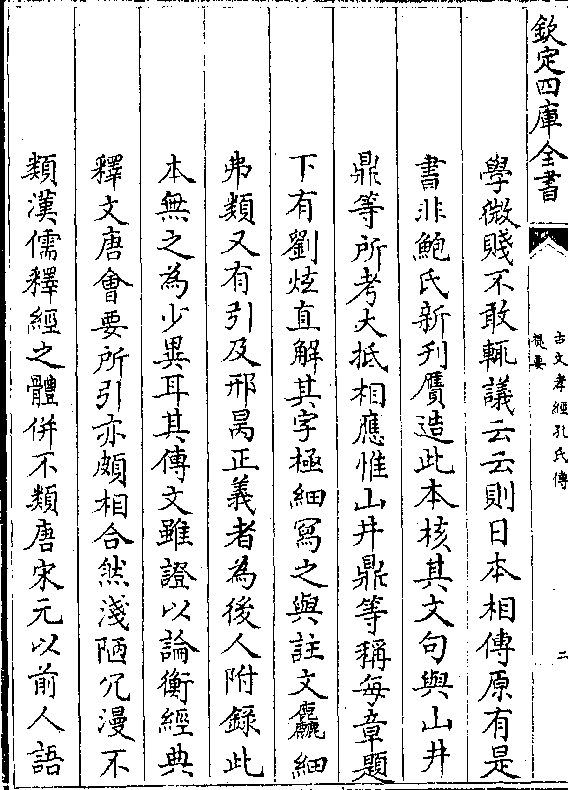 欽定四庫全書
古文孝經孔氏傳
提要
二
學微賤不敢輒議云云則日本相傳原有是
書非鮑氏新刋贋造此本核其文句與山井
鼎等所考大抵相應惟山井鼎等稱每章題
下有劉炫直解其字極細寫之與註文麤細
弗類又有引及邢昺正義者為後人附錄此
本無之為少異耳其傳文雖證以論衡經典
釋文唐會要所引亦頗相合然淺陋冗漫不
類漢儒釋經之體併不類唐宋元以前人語